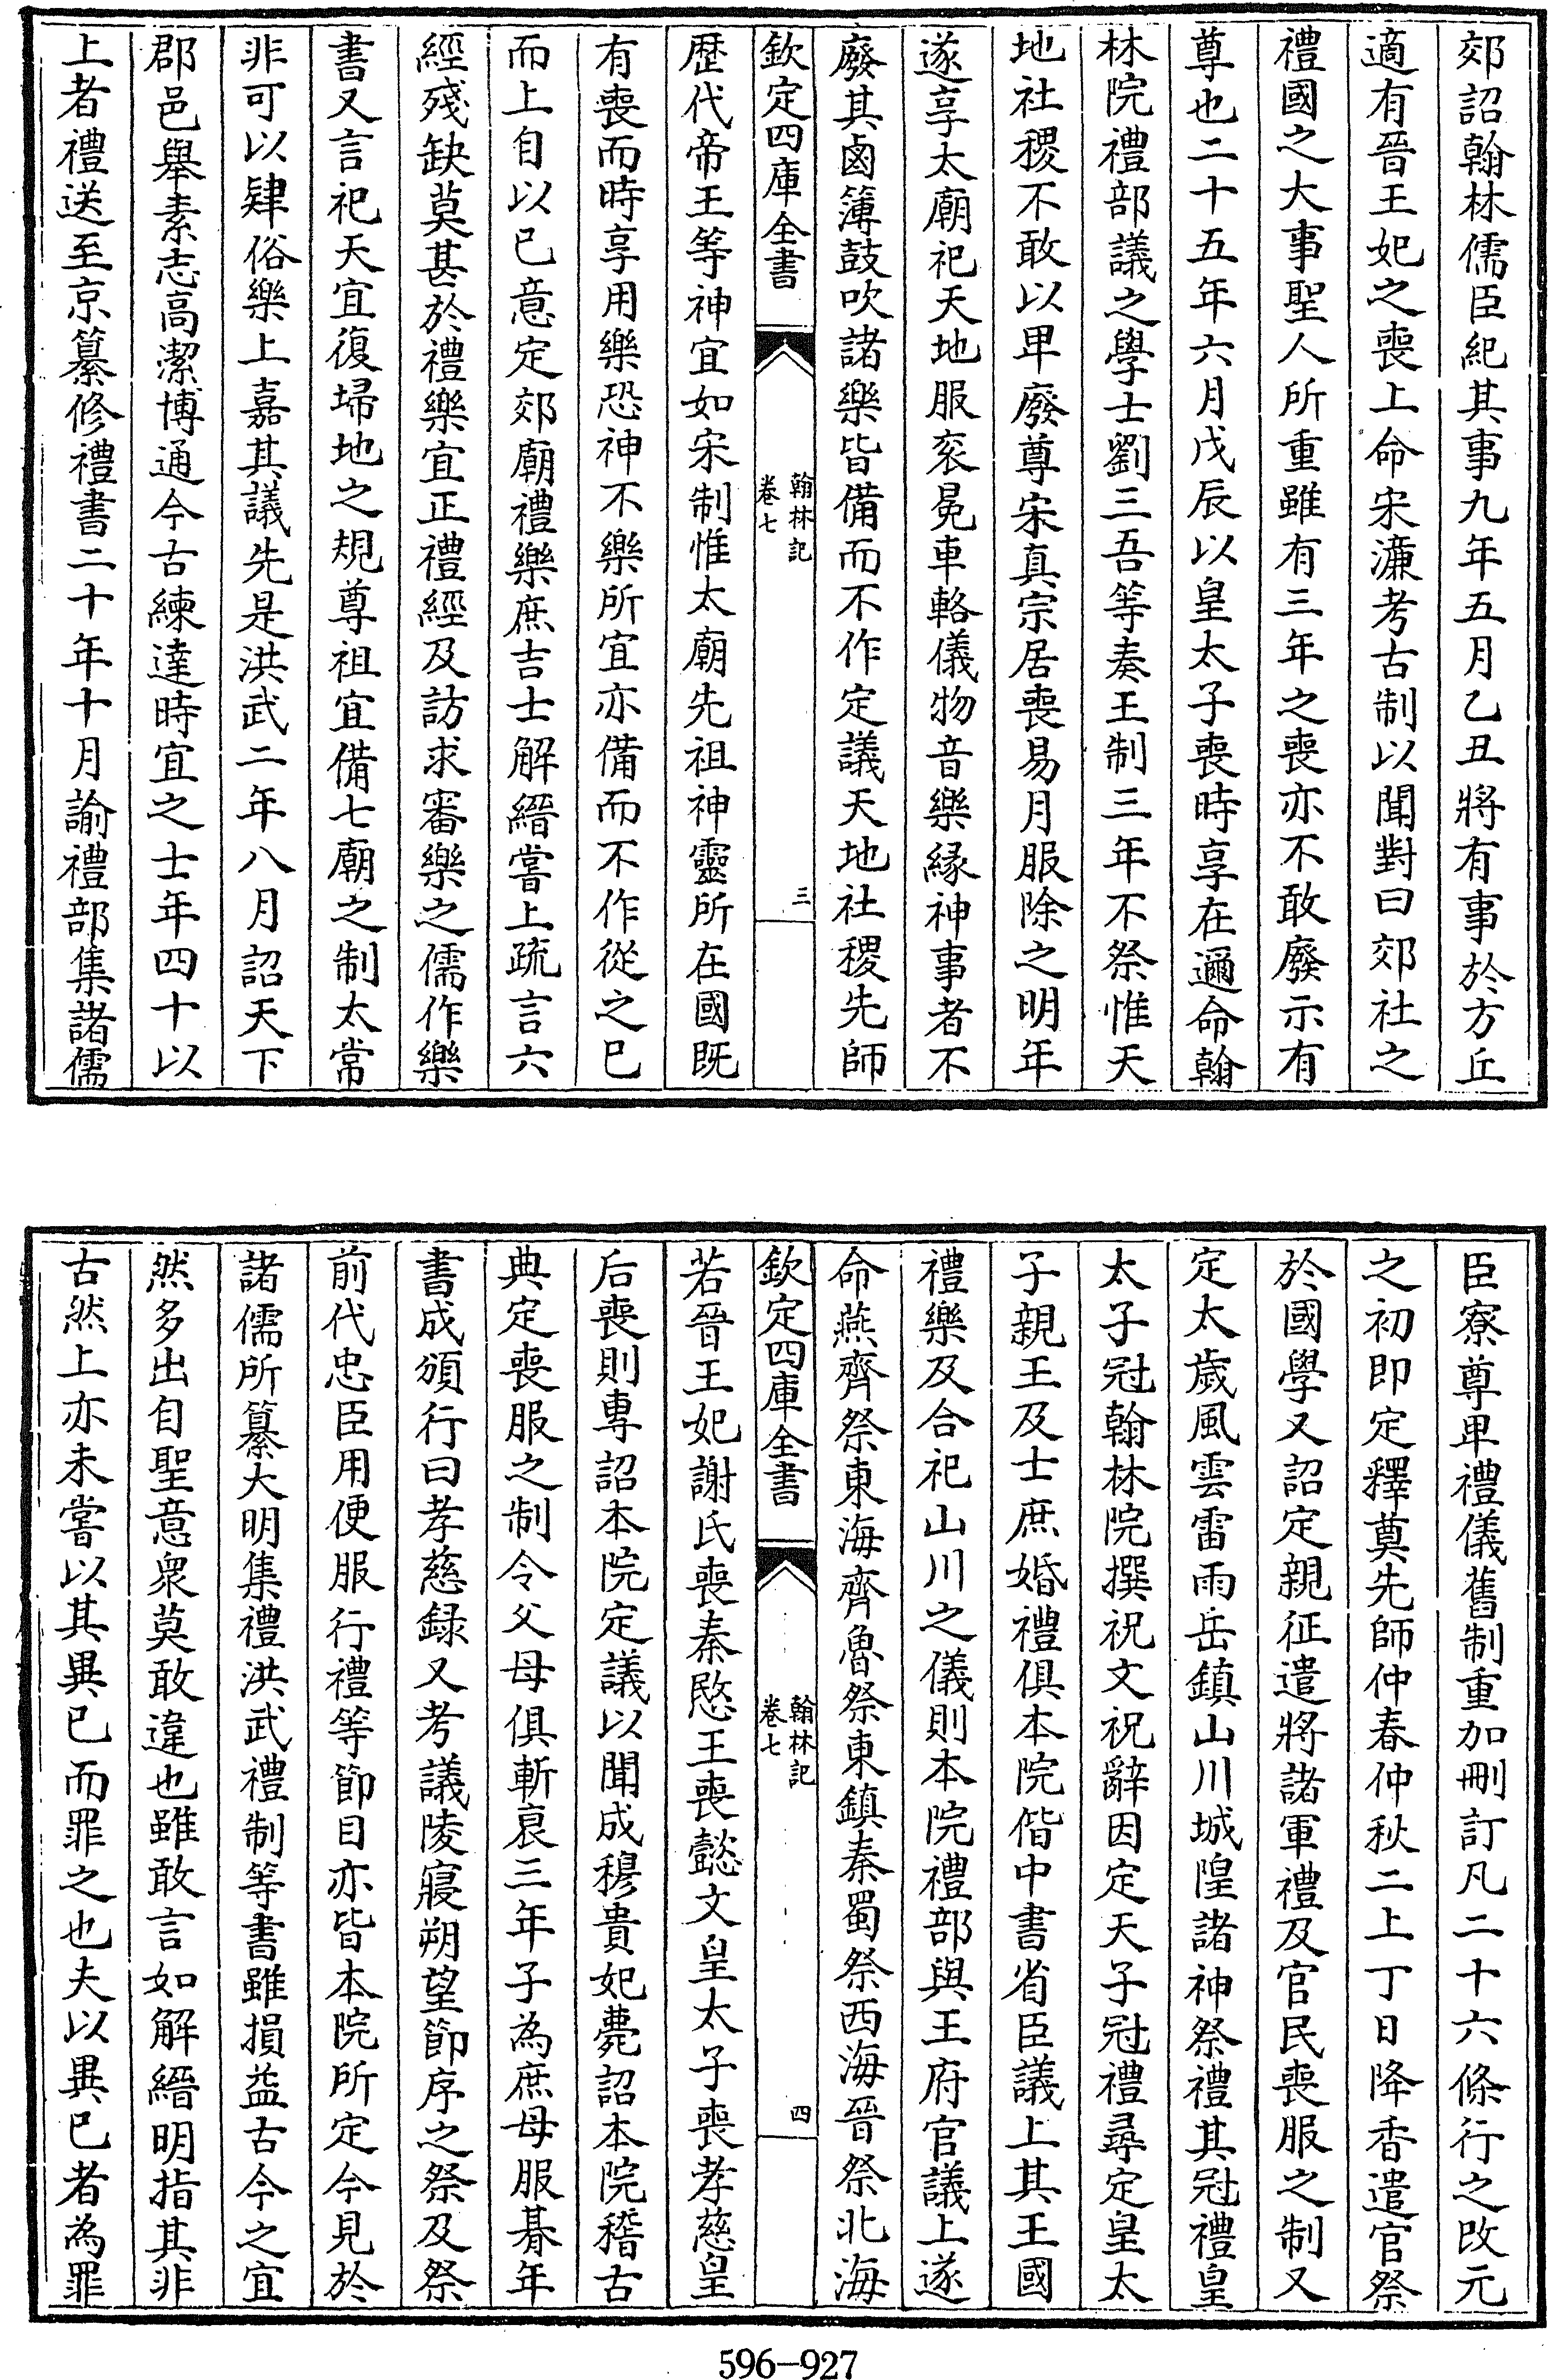 郊詔翰林儒臣紀其事九年五月乙丑將有事於方丘
適有晉王妃之喪上命宋濂考古制以聞對曰郊社之
禮國之大事聖人所重雖有三年之喪亦不敢廢示有
尊也二十五年六月戊辰以皇太子喪時享在邇命翰
林院禮部議之學士劉三吾等奏王制三年不祭惟天
地社稷不敢以卑廢尊宋真宗居喪易月服除之明年
遂享太廟祀天地服衮冕車輅儀物音樂縁神事者不
廢其鹵簿鼓吹諸樂皆備而不作定議天地社稷先師
欽定四庫全書
翰林記
卷七
三
歴代帝王等神宜如宋制惟太廟先祖神靈所在國既
有喪而時享用樂恐神不樂所宜亦備而不作從之已
而上自以已意定郊廟禮樂庶吉士解縉嘗上疏言六
經殘缺莫甚於禮樂宜正禮經及訪求審樂之儒作樂
書又言祀天宜復埽地之規尊祖宜備七廟之制太常
非可以肄俗樂上嘉其議先是洪武二年八月詔天下
郡邑舉素志高潔博通今古練達時宜之士年四十以
上者禮送至京纂修禮書二十年十月諭禮部集諸儒
臣寮尊卑禮儀舊制重加刪訂凡二十六條行之改元
之初即定釋奠先師仲春仲秋二上丁日降香遣官祭
於國學又詔定親征遣將諸軍禮及官民喪服之制又
定太歲風雲雷雨岳鎮山川城隍諸神祭禮其冠禮皇
太子冠翰林院撰祝文祝辭因定天子冠禮尋定皇太
子親王及士庶婚禮俱本院偕中書省臣議上其王國
禮樂及合祀山川之儀則本院禮部與王府官議上遂
命燕齊祭東海齊魯祭東鎮秦蜀祭西海晉祭北海
欽定四庫全書
翰林記
卷七
四
若晉王妃謝氏喪秦愍王喪懿文皇太子喪孝慈皇
后喪則專詔本院定議以聞成穆貴妃薨詔本院稽古
典定喪服之制令父母俱斬衰三年子為庶母服朞年
書成頒行曰孝慈録又考議陵寢朔望節序之祭及祭
前代忠臣用便服行禮等節目亦皆本院所定今見於
諸儒所纂大明集禮洪武禮制等書雖損益古今之宜
然多出自聖意衆莫敢違也雖敢言如解縉明指其非
古然上亦未嘗以其異已而罪之也夫以異已者為罪
596-927